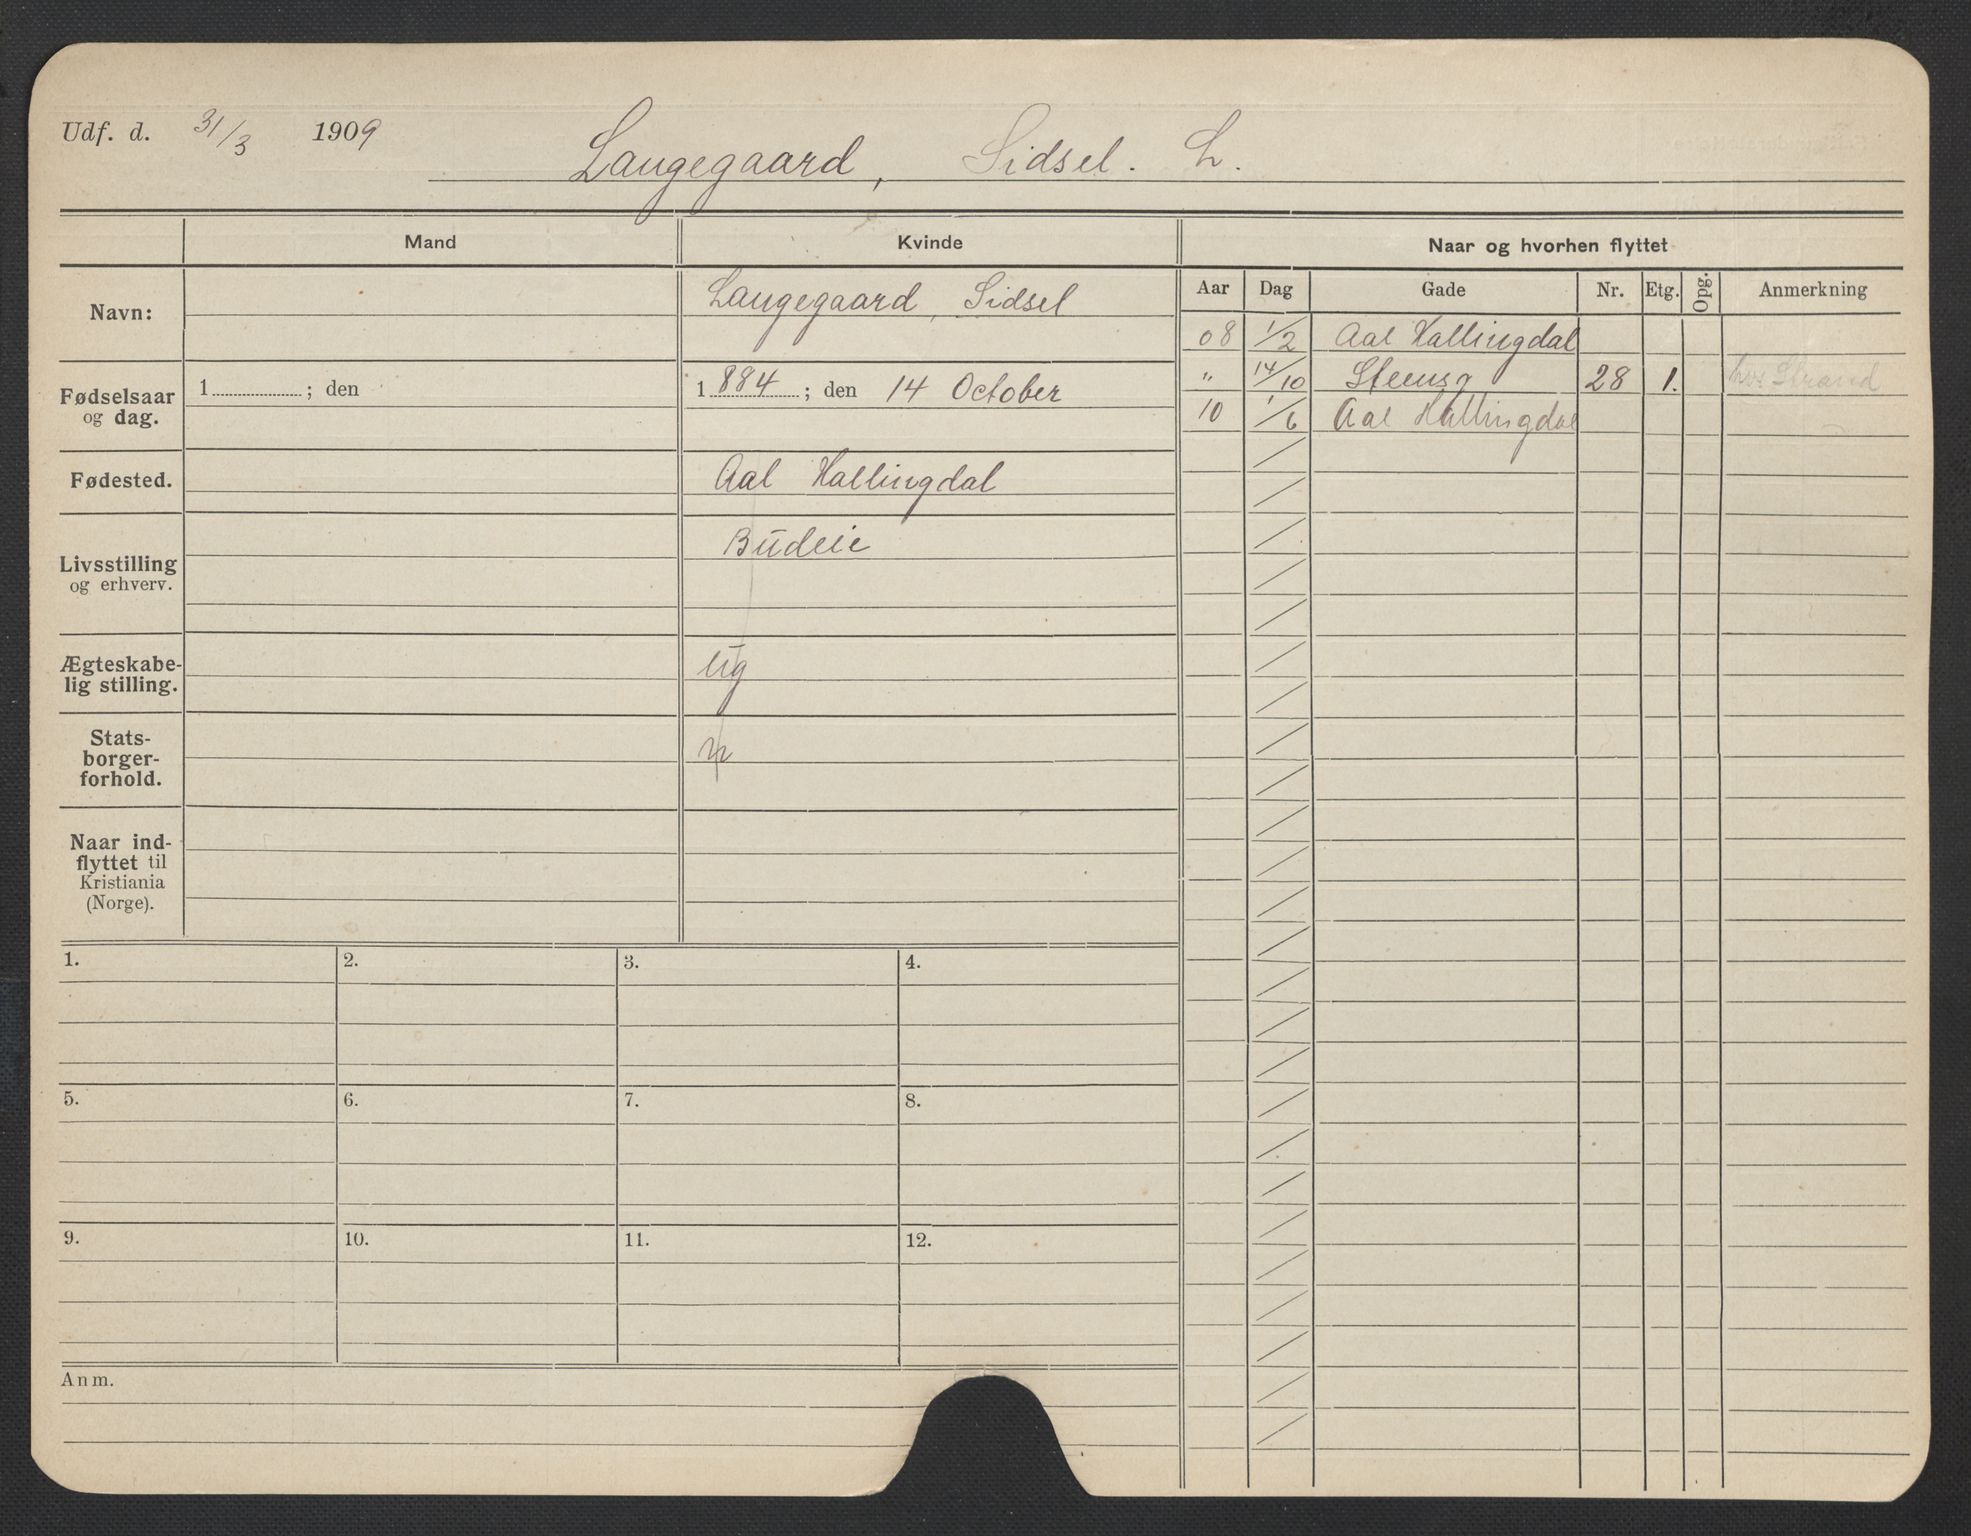 Udf. d. 31/3 1909
Laugegaard, Sidsel. L.
Mand Kvinde Naar og hvorhen flyttet
Aar Dag Gade Nr. Etg. Opg. Anmerkning
Navn: Laugegaard, Sidsel
08 1/2 Aal Hallingdal
Fødselsaar og dag. 1 ; den 1884 ; den 14 October
" 14/10 Steensg 28 1. hos Strand
10 1/6 Aal Hallingdal
Fødested. Aal Hallingdal
Livsstilling og erhverv. Budeie
Ægteskabe-
lig stilling. ug
Stats-
borger-
forhold. n
Naar ind-
flyttet til
Kristiania
(Norge).
1. 2. 3. 4.
5. 6. 7. 8.
9. 10. 11. 12.
Anm.